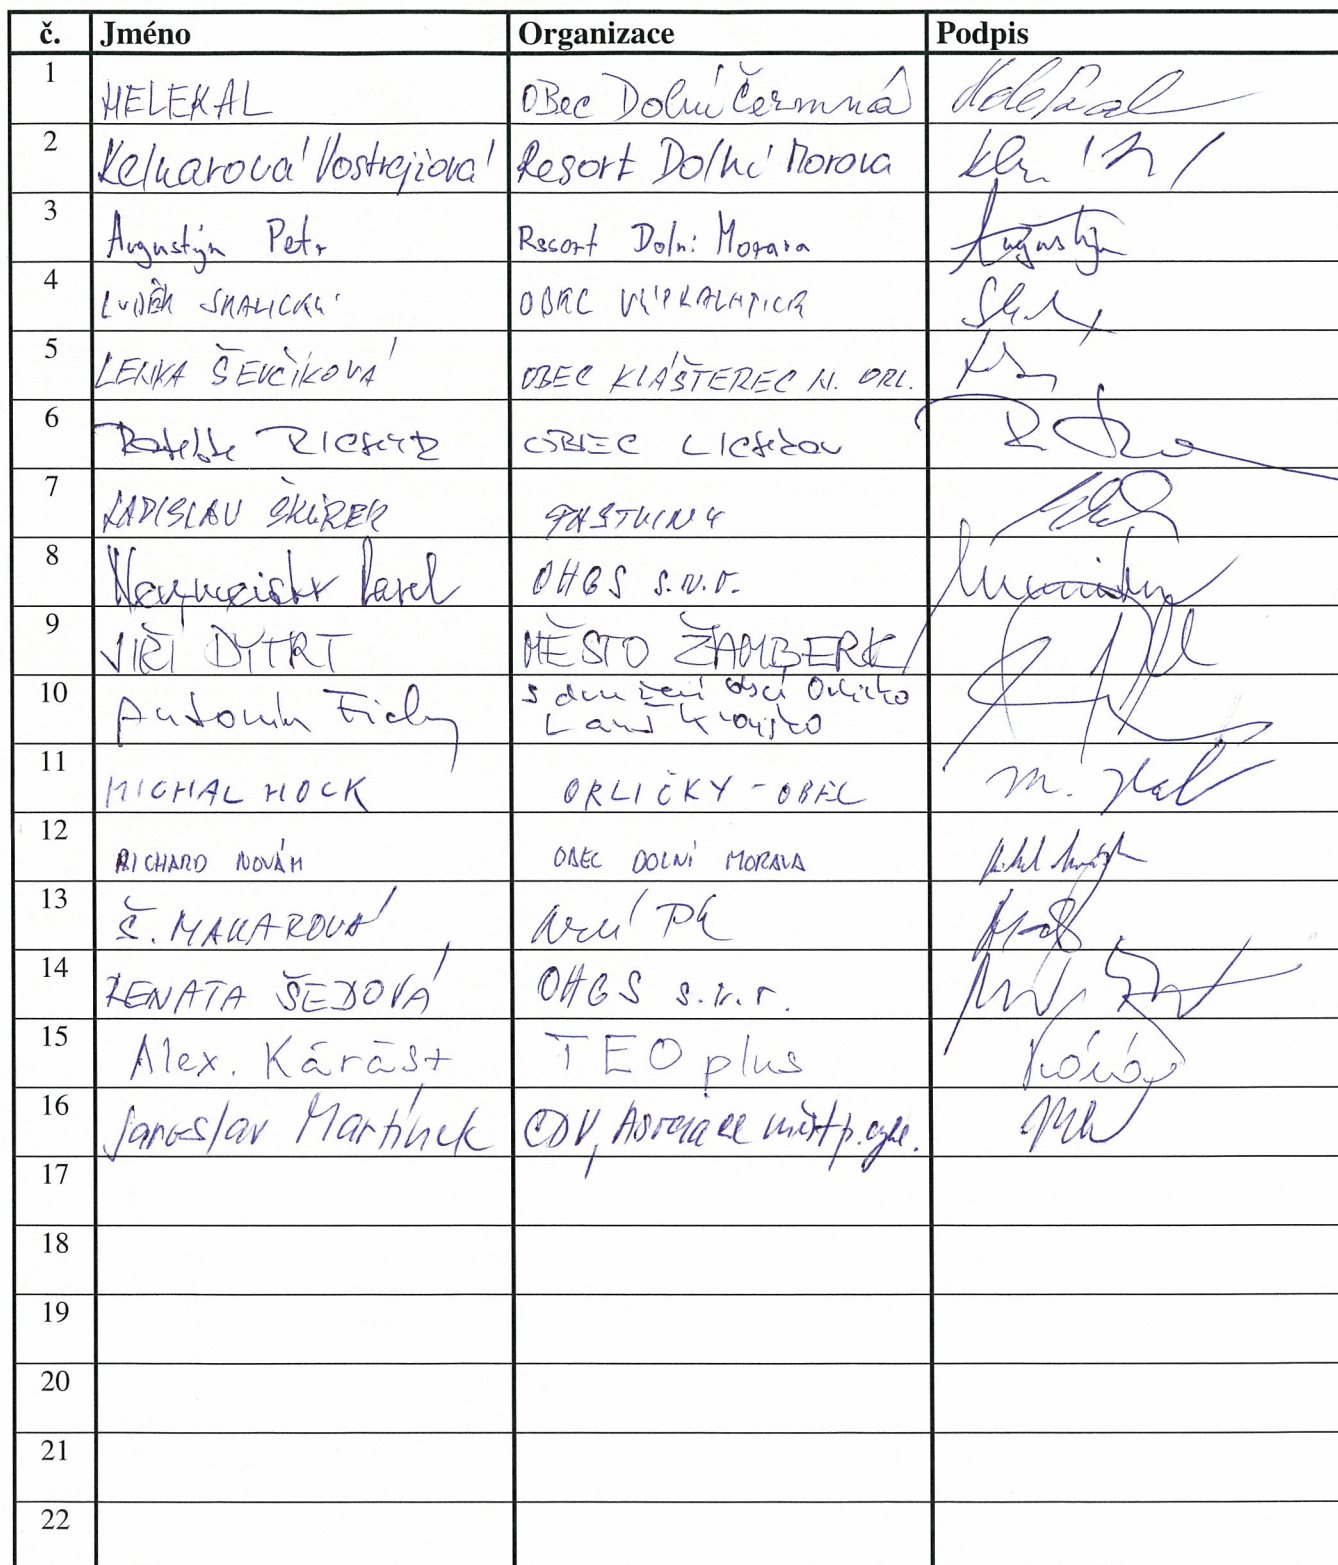 č. Jméno Organizace Podpis
1 HELEKAL OBec Dolní Čermná
2 Kelnarová Vostrejžová Resort Dolní Morava
3 Augustýn Petr Resort Dolní Morava Augustýn
4 LUDĚK SKALICKÝ OBEC
5 LENKA ŠEVČÍKOVÁ OBEC KLÁŠTEREC N. ORL.
6 OBEC LICHKOV
7 LADISLAV ŠKŮREK PASTVINY
8 Neumeister Pavel OHGS s.r.o.
9 JIŘÍ DYTRT MĚSTO ŽAMBERK
10 Antonín Fiala sdružení obcí Orlicko
Lanškrounsko
11 MICHAL HOCK ORLIČKY - OBEC
12 RICHARD NOVÁK OBEC DOLNÍ MORAVA
13 Š. MAKAROVÁ
14 RENATA ŠEDOVÁ OHGS s.r.o.
15 Alex. Kárást TEO plus
16 Jaroslav Martínek CDV, Asociace měst p. cykl.
17
18
19
20
21
22